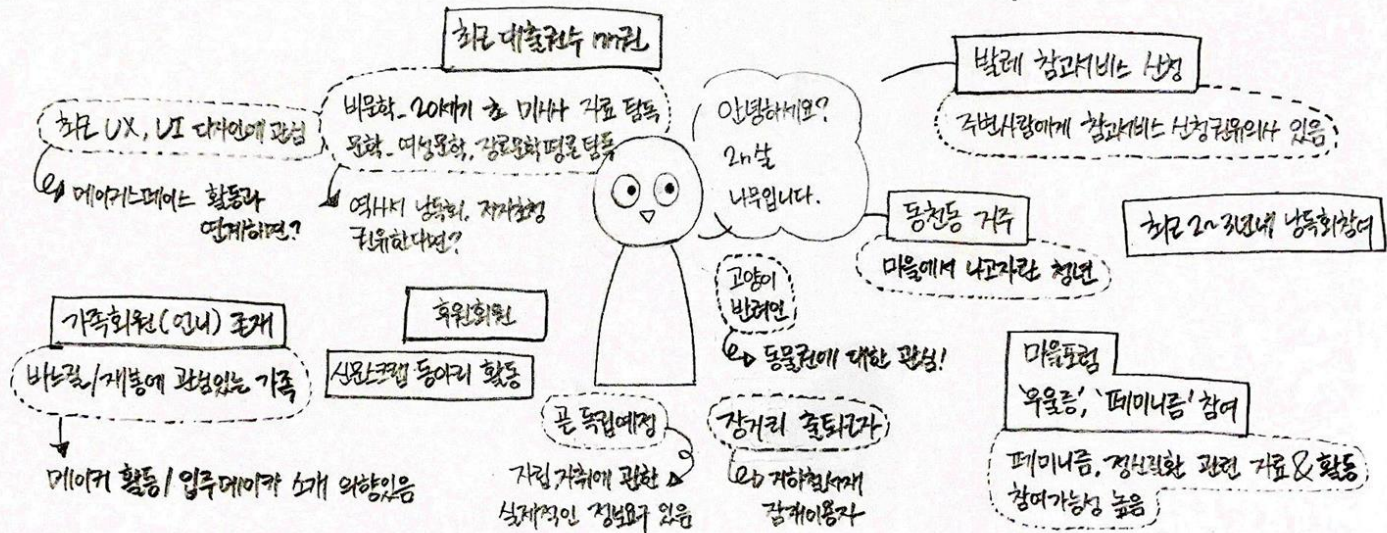 최근 대출권수 nn권
비문학_20세기 초 미시사 자료 탐독
문학_여성문학, 장르문학평론 탐독
역사서 낭독회, 저자초청
권유한다면?
최근 UX, UI 디자인에 관심
메이커스페이스 활동과
연계하면?
안녕하세요?
2n살
나무입니다.
발레 참고서비스 신청
주변사람에게 참고서비스 신청권유의사 있음
동천동 거주
마을에서 나고자란 청년
최근 2~3년내 낭독회참여
가족회원(언니) 존재
바느질/재봉에 관심있는 가족
메이커 활동/입주메이커 소개 의향있음
후원회원
신문스크랩 동아리 활동
고양이
반려인
동물권에 대한 관심!
곧 독립예정
자립, 자취에 관한
실제적인 정보요구 있음
장거리 출퇴근자
지하철서재
잠재이용자
마을포럼
'우울증', '페미니즘' 참여
페미니즘, 정신질환 관련 자료 & 활동
참여가능성 높음